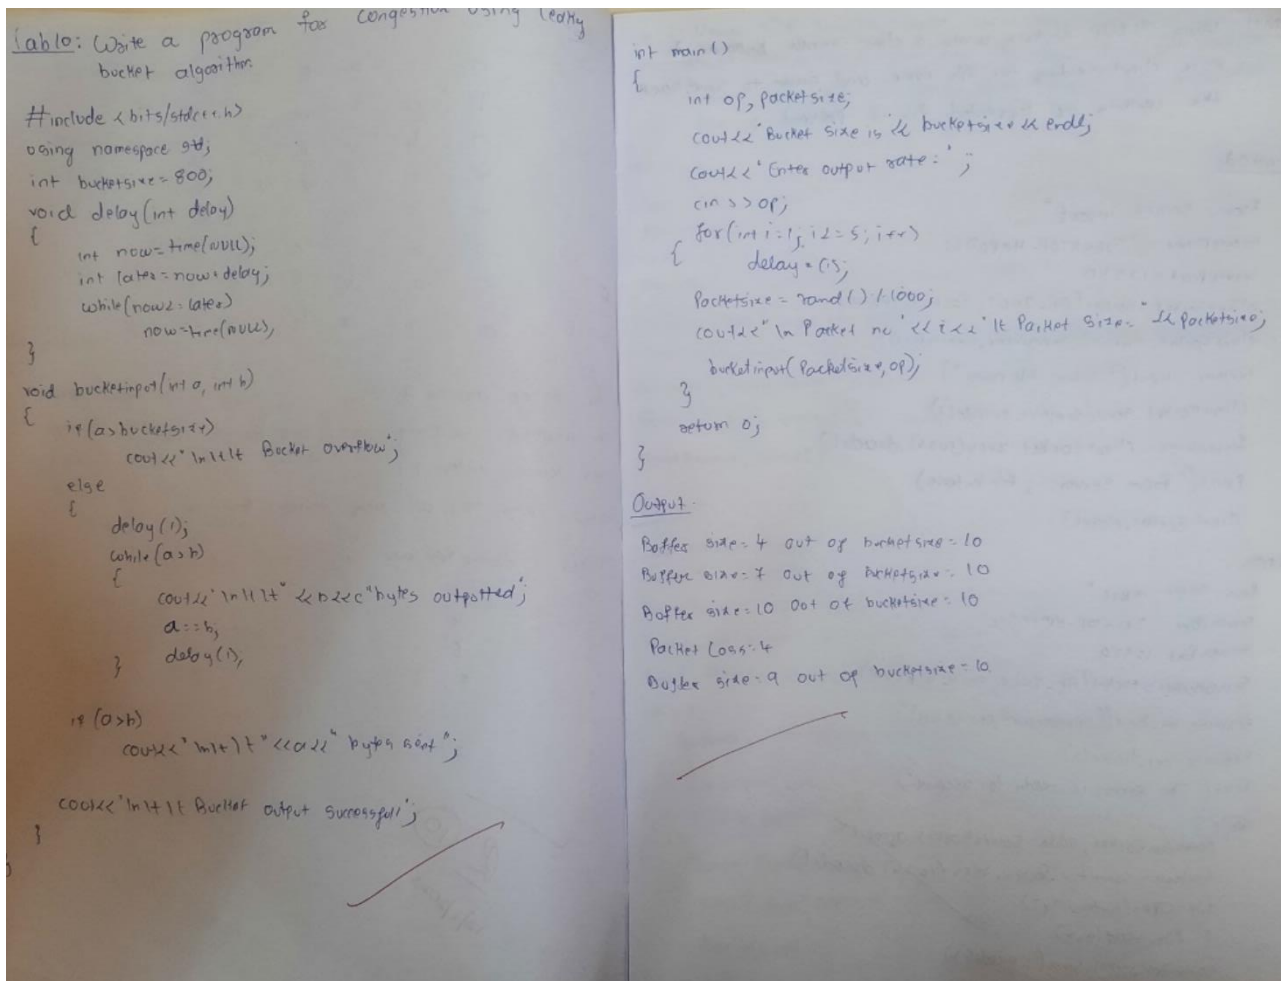 Lab10: Write a program for congestion using leaky
bucket algorithm.
#include <bits/stdc++.h>
using namespace std;
int bucketsize = 800;
void delay(int delay)
{
int now=time(NULL);
int later=now+delay;
while(now<=later)
now=time(NULL);
}
void bucketinput(int a, int b)
{
if(a>bucketsize)
cout<<"\n\t\t Bucket overflow";
else
{
delay(1);
while(a>b)
{
cout<<"\n\t\t"<<b<<"bytes outputted";
a-=b;
delay(1);
}
if(a>b)
cout<<"\n\t\t"<<a<<" bytes sent";
cout<<"\n\t\t Bucket output successful";
}
}
int main()
{
int op, packetsize;
cout<<"Bucket size is"<< bucketsize << endl;
cout<<"Enter output rate:";
cin>>op;
for(int i=1; i<=5; i++)
{
delay
packetsize = rand()%1000;
cout<<"\n Packet no "<<i<<"\t Packet size= "<<packetsize;
bucketinput(packetsize,op);
}
return 0;
}
Output
Buffer size=4 out of bucketsize=10
Buffer size=7 out of bucketsize=10
Buffer size=10 Out of bucketsize=10
Packet Loss=4
Buffer size=9 out of bucketsize=10